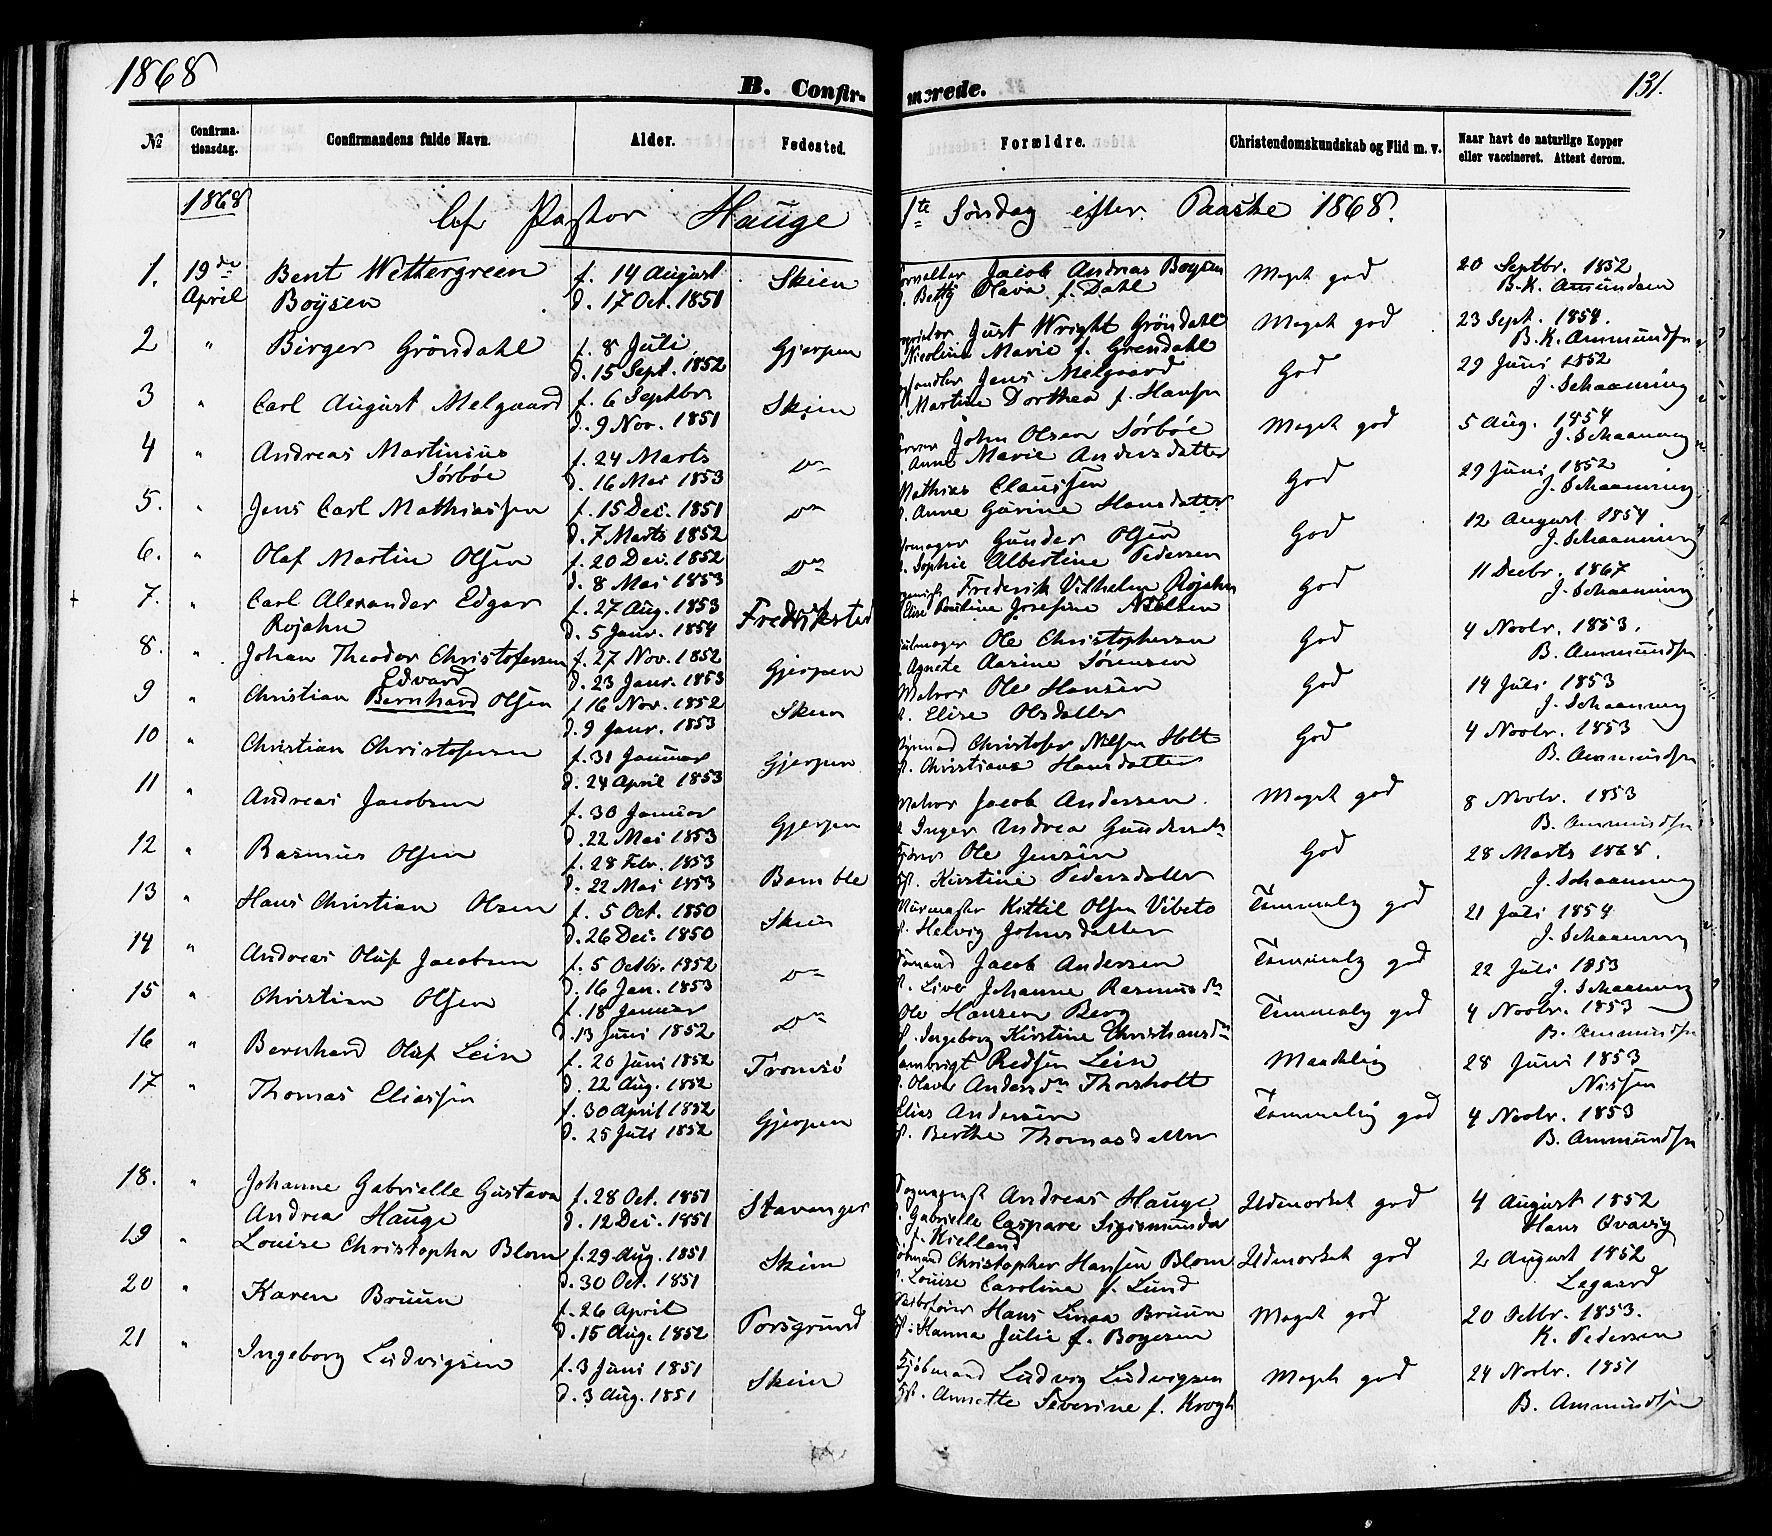 1868
B. Confir-
merede.
131.
№
Confirma-
tionsdag.
Confirmandens fulde Navn.
Alder.
Fødested.
Forældre.
Christendomskundskab og Flid m. v.
Naar havt de naturlige Kopper
eller vaccineret. Attest derom.
1868
Af Pastor Hauge
1te Søndag efter Paaske 1868.
1. 19de Bent Wettergreen f. 14 August Skien Jacob Andreas Boysen Meget god 20 Septbr. 1852
April Boysen d. 17 Oct. 1851 Betty Olava f. Dahl B.K. Amundsen
2 " Birger Gröndahl f. 8 Juli Gjerpen Just Wright Gröndahl Meget god 23 Sept. 1854.
d. 15 Sept. 1852 Nicoline Marie f. Grendahl B.K. Ammundsen
3 " Carl August Melgaard f. 6 Septbr Skien Jens Melgaard God 29 Juni 1852
d. 9 Nov. 1851 Martine Dorthea f. Hansen J. Schaanning
4 " Andreas Martinius f. 24 Marts Do John Olsen Sörböe Meget god 5 Aug. 1854
Sörböe d. 16 Mai 1853 Anne Marie Andersdatter J. Schaanning
5. " Jens Carl Mathiassen f. 15 Dec. 1851 Do Mathias Claussen God 29 Juni 1852
d. 7 Marts 1852 Anne Gurine Hansdatter J. Schaanning
6. " Olaf Martin Olsen f. 20 Dec. 1852 Do Gunder Olsen God 12 August 1854
d. 8 Mai 1853 Sophie Albertine Pedersen J. Schaanning
7. " Carl Alexander Edgar f. 27 Aug. 1853 Fredrikstad Frederik Vilhelm Rojahn God 11 Decbr. 1867
Rojahn d. 5 Janr. 1854 Elise Pauline Josefine Nielsen J. Schaanning
8. " Johan Theodor Christofersen f. 27 Nov. 1852 Gjerpen Ole Christophersen God 4 Novbr. 1853.
d. 23 Janr. 1853 Agnete Aasine Sørensen B. Ammundsen
Edvard
9 " Christian Bernhard Olsen f. 16 Nov. 1852 Skien Matros Ole Hansen God 14 Juli 1853
d. 9 Janr. 1853 Elise Olsdatter J. Schaanning
10 " Christian Christofersen f. 31 Januar Gjerpen Christofer Nilsen Holt God 4 Novbr. 1853
d. 24 April 1853 Christiane Hansdatter B. Ammundsen
11 " Andreas Jacobsen f. 30 Januar Gjerpen Matros Jacob Andersen. Meget god 8 Novbr. 1853
d. 22 Mai 1853 Inger Andrea B. Ammundsen
12 " Rasmus Olsen f. 28 Febr. 1853 Bamble Ole Jensen God 28 Marts 1868.
d. 22 Mai 1853 Kirstine Pedersdatter J. Schaanning
13 " Hans Christian Olsen f. 5 Oct. 1850 Skien Murmester Kittil Olsen Vibeto Temmelig god 21 Juli 1854
d. 26 Dec. 1850 Helvig Johnsdatter J. Schaanning
14 " Andreas Oluf Jacobsen f. 5 Octbr. 1852 Do Jacob Andersen Temmelig god 22 Juli 1853
d. 16 Jan. 1853 Live Johanne Rasmusdr J. Schaanning
15 " Christian Olsen f. 18 Januar Do Ole Hansen Berg Temmelig god 4 Novbr. 1853
d. 13 Juni 1852 Ingeborg Kirstine Christiansdr B. Ammundsen
16 " Bernhard Oluf Lein f. 20 Juni 1852 Tromsö Lambrigt Lein Maadelig 28 Juni 1853
d. 22 Aug. 1852 Olava Andersdr Thorsholt Nissen
17 " Thomas Eliassen f. 30 April 1852 Gjerpen Elias Andersen Temmelig god 4 Novbr. 1853
d. 25 Juli 1852 Berthe Thomasdatter B. Ammundsen
18. " Johanne Gabrielle Gustava f. 28 Oct. 1851 Stavanger Sognepræst Andreas Hauge Udmerket god 4 August 1852
Andrea Hauge d. 12 Dec. 1851 Gabrielle Caspare Sigismunda Hans
f. Kielland
19 " Louise Christopha Blom f. 29 Aug. 1851 Skien Christopher Hansen Blom Udmerket god 2 August 1852
d. 30 Oct. 1851 Louise Caroline f. Lund Legaard
20 " Karen Bruun f. 26 April Porsgrund Hans Bruun Meget god 20 Octbr. 1853.
d. 15 Aug. 1852 Hanna Julie f. Boyesen K. Pedersen
21 " Ingeborg Ludvigsen f. 3 Juni 1851 Skien Kjöbmand Ludvig Ludvigsen Meget god 24 Novbr. 1851
d. 3 Aug. 1851 Annette Severine f. Krogh B. Ammundsen